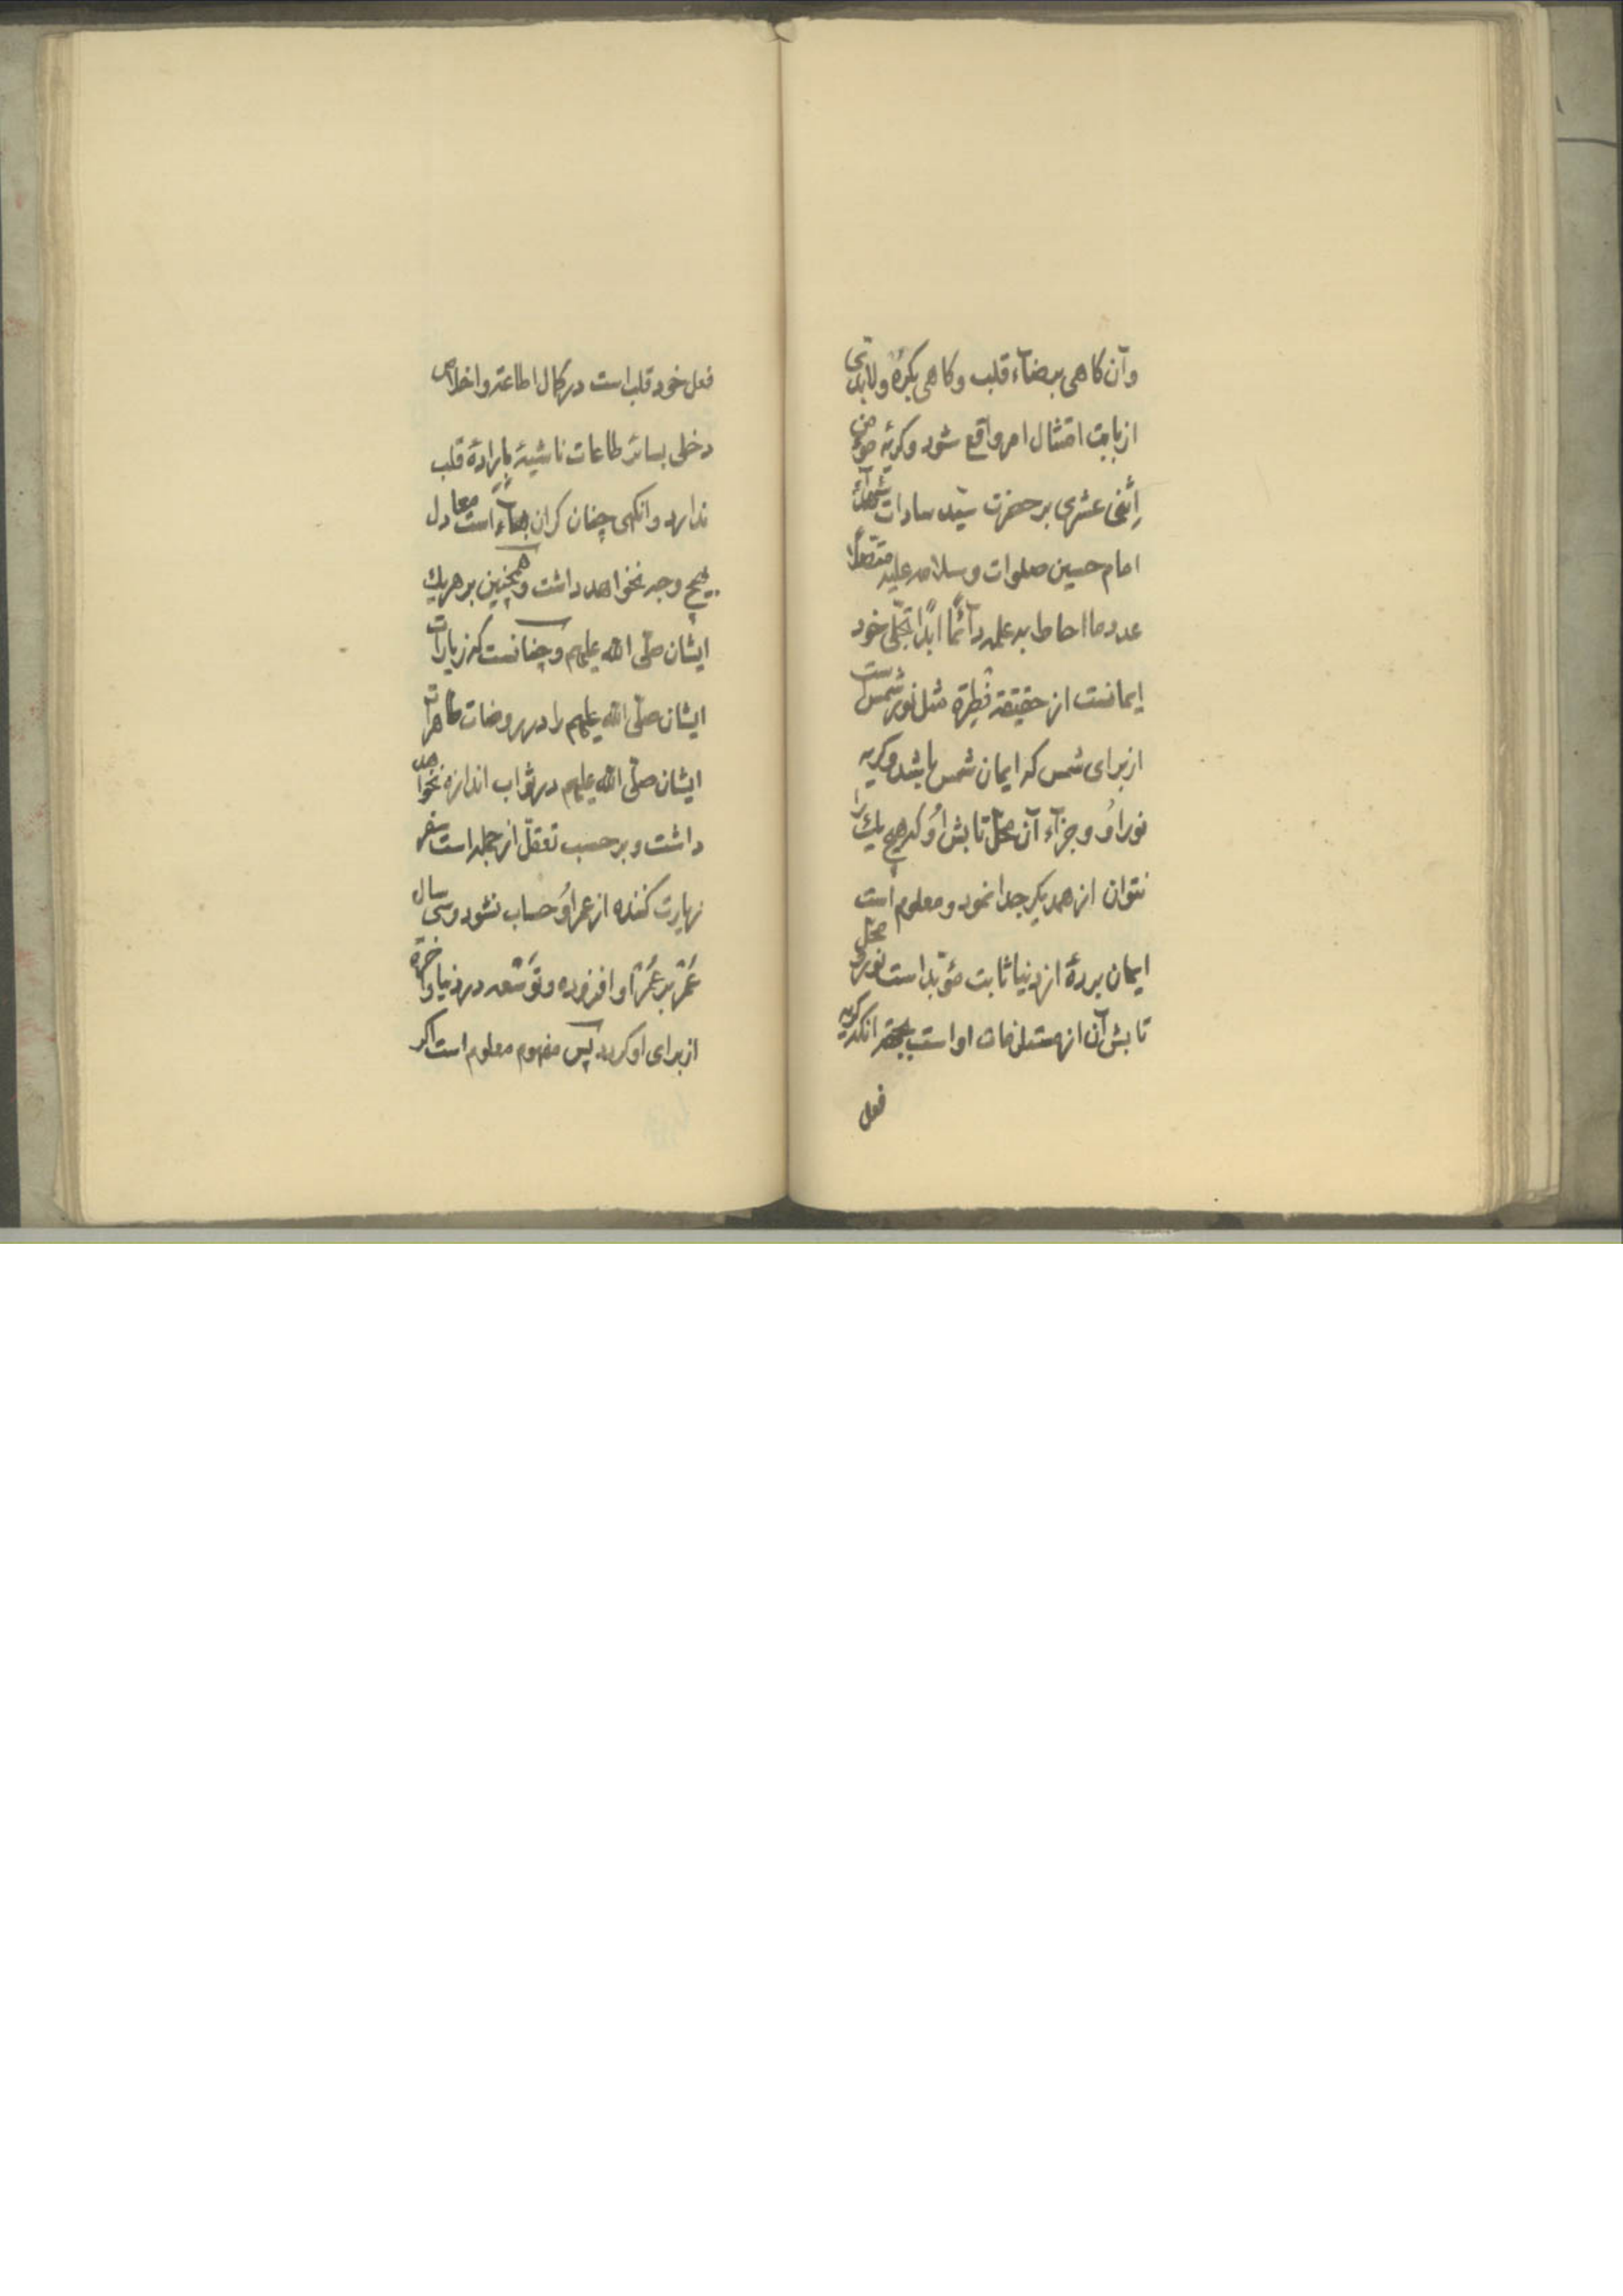 وآن كاهى برضآء قلب وكاهى بكرهٔ ولابدى
از بابت امتثال امر واقع شود وكريهٔ مؤمن
اِثنى عشرى بر حضرت سيّد سادات شهدآء
امام حسين صلوات وسلامه عليه
عدد ما احاط به علمه دآئمًا ابدًا تجلّى خود
ايمانست از حقيقة فطرة مثل نور شمس است
از براى شمس كه ايمان شمس باشد وكريه
نور اوُ وجزآء آن محلّ تابش اوُ كه هيچ يك را
نتوان از همديكر جدا نمود ومعلوم است
ايمان برده از دنيا ثابت مؤبّد است نورش محلّ
تابش آن از مستلزمات او است انكه كريه
فعل
فعل خود قلب است در كمال اطاعته واخلاص
دخلى بسائر طاعات ناشيهٔ بارادهٔ قلب
ندارد وانكهى چنان كران بهآء است معادل
بهيچ وجه نخواهد داشت وهمچنين بر هر يك
ايشان صلّى الله عليهم وچنانست كه زيارات
ايشان صلّى الله عليهم را در روضات طاهرات
ايشان صلّى الله عليهم در ثواب اندازه نخواهد
داشت وبر حسب تعقلّ از جمله است سفر
زيارت كننده از عمر اوُ حساب نشود وسى سال
عمر بر عمر او افزوده وتوسّعه در دنيا وآخرة
از براى او كردد پس مفهوم معلوم است اكر